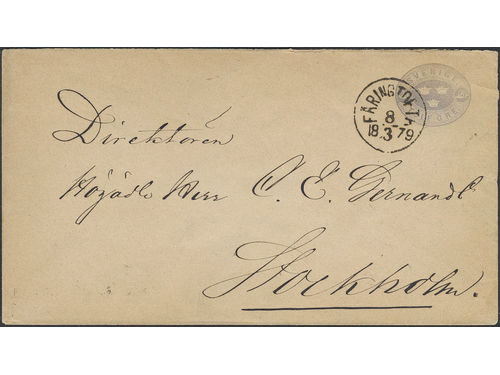 SVERIGE
FÄRINGTOFTA
8
18 3 79
Direktören
Högädle Herr C. E. Gernandt
Stockholm.